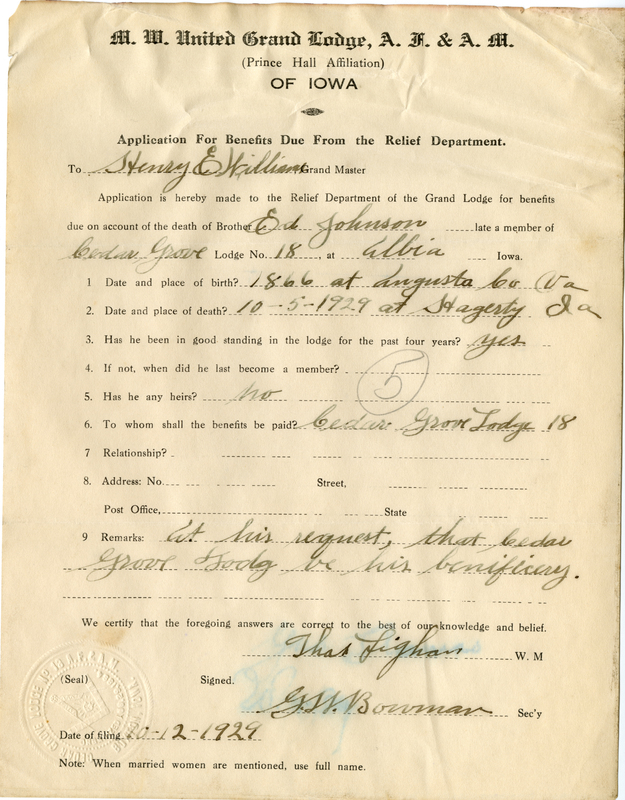 M. W. United Grand Lodge, A. F. & A. M.
(Prince Hall Affiliation)
OF IOWA
Application For Benefits Due From the Relief Department.
To Henry E Williams Grand Master
Application is hereby made to the Relief Department of the Grand Lodge for benefits
due on account of the death of Brother Ed Johnson late a member of
Cedar Grove Lodge No. 18, at Albia Iowa.
1 Date and place of birth? 1866 at Augusta Co Va
2. Date and place of death? 10-5-1929 at Hagerty Ia
3. Has he been in good standing in the lodge for the past four years? yes
4. If not, when did he last become a member?
5. Has he any heirs? no 5
6. To whom shall the benefits be paid? Cedar Grove Lodge 18
7 Relationship?
8. Address: No. Street,
Post Office, State
9 Remarks: At his request, that Cedar
Grove Lodg be his benificery.
We certify that the foregoing answers are correct to the best of our knowledge and belief.
Thos W. M
(Seal) Signed.
G.W. Bowman Sec'y
Date of filing 10-12-1929
Note: When married women are mentioned, use full name.